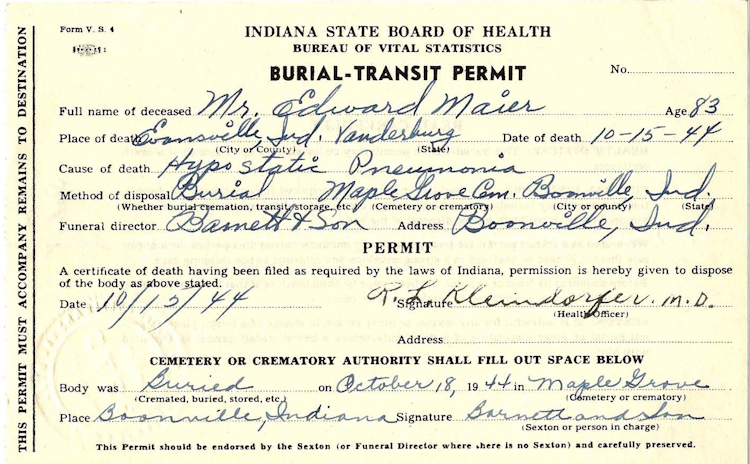 Form V. S. 4
INDIANA STATE BOARD OF HEALTH
BUREAU OF VITAL STATISTICS
BURIAL-TRANSIT PERMIT
No.
Full name of deceased Mr. Edward Maier Age 83
Place of death Evansville, Ind. Vanderburg Date of death 10-15-44
(City or County) (State)
Cause of death Hypostatic Pneumonia
Method of disposal Burial Maple Grove Cem. Boonville, Ind.
(Whether burial cremation, transit, storage, etc.) (Cemetery or crematory) (City or county) (State)
Funeral director Barnett & Son Address Boonville, Ind.
PERMIT
A certificate of death having been filed as required by the laws of Indiana, permission is hereby given to dispose
of the body as above stated.
Date 10/15/44 Signature R. L. Kleindorfer. M.D.
(Health Officer)
Address
CEMETERY OR CREMATORY AUTHORITY SHALL FILL OUT SPACE BELOW
Body was Buried on October 18, 1944 in Maple Grove
(Cremated, buried, stored, etc.) (Cemetery or crematory)
Place Boonville, Indiana Signature Barnett and Son
(Sexton or person in charge)
This Permit should be endorsed by the Sexton (or Funeral Director where there is no Sexton) and carefully preserved.
THIS PERMIT MUST ACCOMPANY REMAINS TO DESTINATION